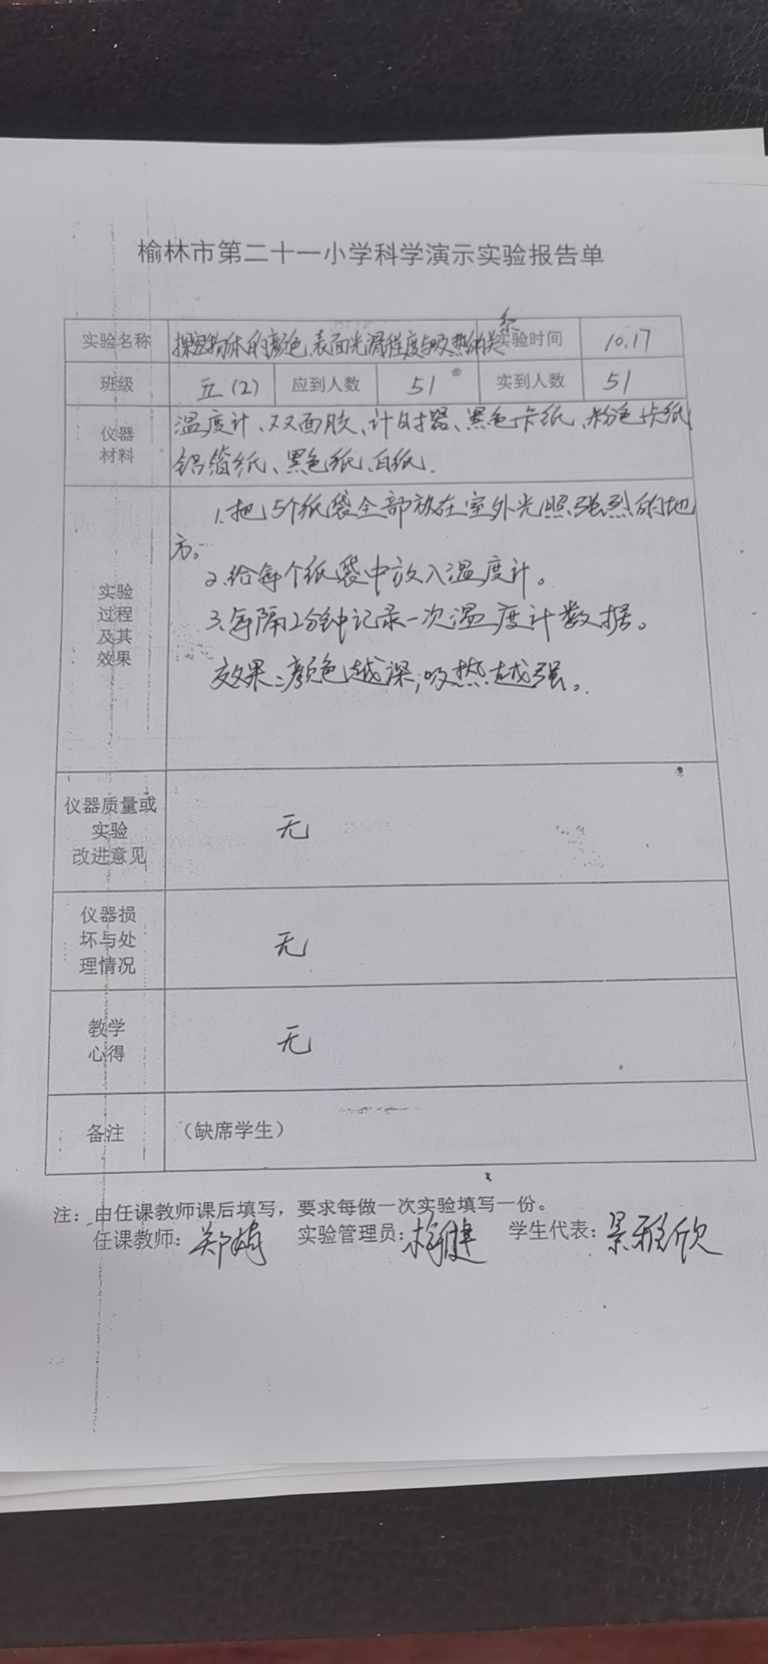 榆林市第二十一小学科学演示实验报告单
实验名称 探究物体的颜色、表面光滑程度与吸热的关系 实验时间 10.17
班级 五(2) 应到人数 51 实到人数 51
仪器
材料
温度计、双面胶、计时器、黑色卡纸、粉色卡纸
铝箔纸、黑色纸、白纸.
实验
过程
及其
效果
1.把5个纸袋全部放在室外光照强烈的地
方。
2.给每个纸袋中放入温度计。
3.每隔2分钟记录一次温度计数据。
效果:颜色越深,吸热越强。
仪器质量或
实验
改进意见
无
仪器损
坏与处
理情况
无
教学
心得
无
备注 (缺席学生)
注:由任课教师课后填写,要求每做一次实验填写一份。
任课教师: 郑 实验管理员: 学生代表:景雅欣